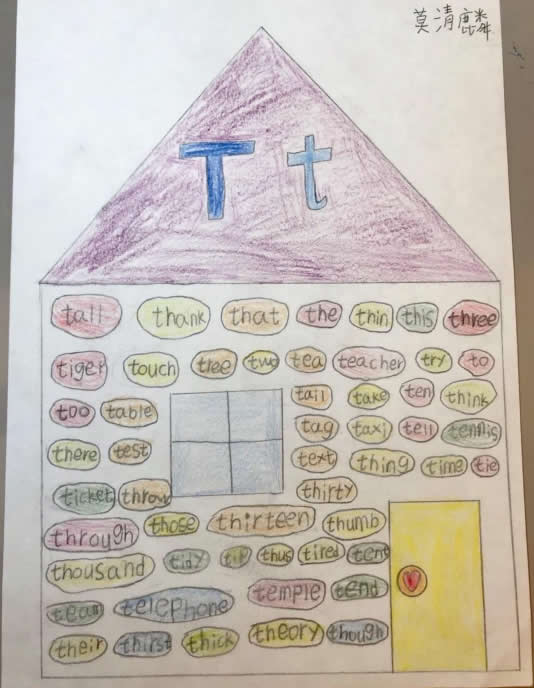 莫清麟
T t
tall thank that the thin this three
tiger touch tree two tea teacher try to
too table tail take ten think
there test tag taxi tell tennis
ticket throw text thing time tie
thirty
through those thirteen thumb
thousand tidy tip thus tired tent
team telephone temple tend
their thirst thick theory though